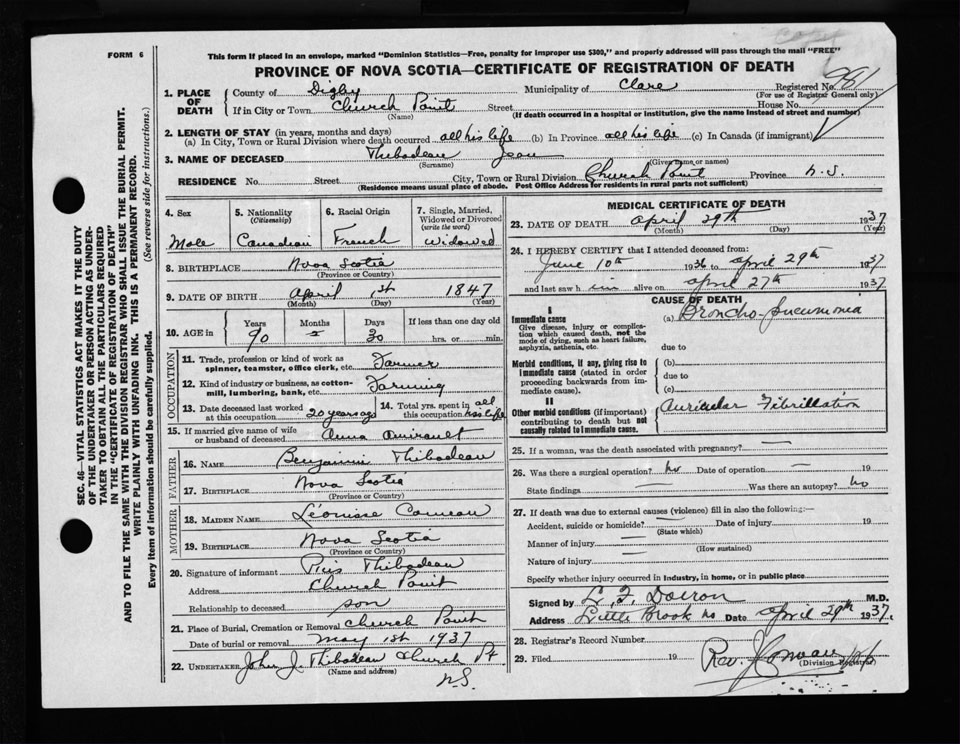 FORM 6
This form if placed in an envelope, marked "Dominion Statistics—Free, penalty for improper use $300," and properly addressed will pass through the mail "FREE"
PROVINCE OF NOVA SCOTIA—CERTIFICATE OF REGISTRATION OF DEATH
SEC. 46—VITAL STATISTICS ACT MAKES IT THE DUTY
OF THE UNDERTAKER OR PERSON ACTING AS UNDER-
TAKER TO OBTAIN ALL THE PARTICULARS REQUIRED
IN THE "CERTIFICATE OF REGISTRATION OF DEATH"
AND TO FILE THE SAME WITH THE DIVISION REGISTRAR WHO SHALL ISSUE THE BURIAL PERMIT.
WRITE PLAINLY WITH UNFADING INK. THIS IS A PERMANENT RECORD.
Every item of information should be carefully supplied. (See reverse side for instructions.)
1. PLACE OF DEATH County of Digby Municipality of Clare Registered No. 981
(For use of Registrar General only)
If in City or Town Church Point Street House No.
(Name) (If death occurred in a hospital or institution, give the name instead of street and number)
2. LENGTH OF STAY (in years, months and days)
(a) In City, Town or Rural Division where death occurred all his life (b) In Province all his life (c) In Canada (if immigrant)
3. NAME OF DECEASED Thibodeau Jean
(Surname) (Given name or names)
RESIDENCE No. Street City, Town or Rural Division Church Point Province N.S.
(Residence means usual place of abode. Post Office Address for residents in rural parts not sufficient)
4. Sex 5. Nationality (Citizenship) 6. Racial Origin 7. Single, Married, Widowed or Divorced (write the word)
Male Canadian French Widowed
8. BIRTHPLACE Nova Scotia
(Province or Country)
9. DATE OF BIRTH April 1st 1847
(Month) (Day) (Year)
10. AGE in Years Months Days If less than one day old
90 30 hrs. or min.
OCCUPATION
11. Trade, profession or kind of work as spinner, teamster, office clerk, etc. Farmer
12. Kind of industry or business, as cotton-mill, lumbering, bank, etc. Farming
13. Date deceased last worked at this occupation 20 years ago 14. Total yrs. spent in this occupation all his life
15. If married give name of wife or husband of deceased Anna Amirault
FATHER
16. NAME Benjamin Thibodeau
17. BIRTHPLACE Nova Scotia
(Province or Country)
MOTHER
18. MAIDEN NAME Léonisse Comeau
19. BIRTHPLACE Nova Scotia
(Province or Country)
20. Signature of informant Pius Thibodeau
Address Church Point
Relationship to deceased son
21. Place of Burial, Cremation or Removal Church Point
Date of burial or removal May 1st 1937
22. UNDERTAKER John J. Thibodeau Church Pt
(Name and address)
N.S.
MEDICAL CERTIFICATE OF DEATH
23. DATE OF DEATH April 29th 1937
(Month) (Day) (Year)
24. I HEREBY CERTIFY that I attended deceased from:
June 10th 1936 to April 29th 1937
and last saw him alive on April 27th 1937
CAUSE OF DEATH
I
Immediate cause
Give disease, injury or complication which caused death, not the mode of dying, such as heart failure, asphyxia, asthenia, etc.
(a) Broncho-pneumonia
due to
Morbid conditions, if any, giving rise to immediate cause (stated in order proceeding backwards from immediate cause).
(b)
due to
(c)
II
Other morbid conditions (if important) contributing to death but not causally related to immediate cause.
Auricular Fibrillation
25. If a woman, was the death associated with pregnancy? —
26. Was there a surgical operation? No Date of operation — 19
State findings — Was there an autopsy? No
27. If death was due to external causes (violence) fill in also the following:—
Accident, suicide or homicide? — Date of injury 19
(State which)
Manner of injury —
(How sustained)
Nature of injury —
Specify whether injury occurred in industry, in home, or in public place
Signed by L. F. Doiron M.D.
Address Little Brook NS Date April 29th 1937
28. Registrar's Record Number
29. Filed 19 Rev. J. Comeau
(Division Registrar)